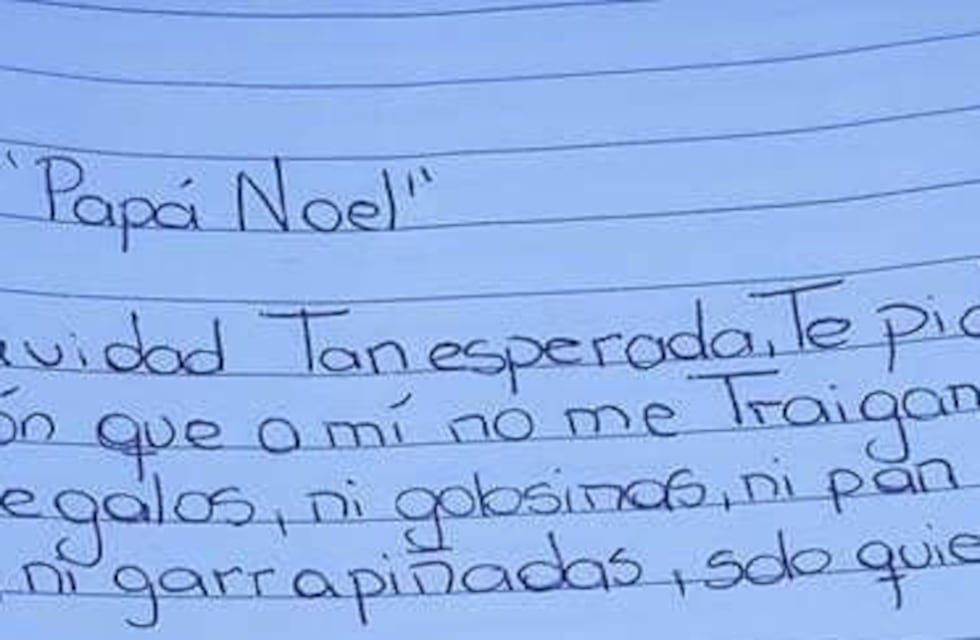 "Papá Noel"
avidad Tan esperada, Te pid
ón que a mí no me Traigan
egalos, ni golosinas, ni pan
, ni garrapiñadas, solo quie